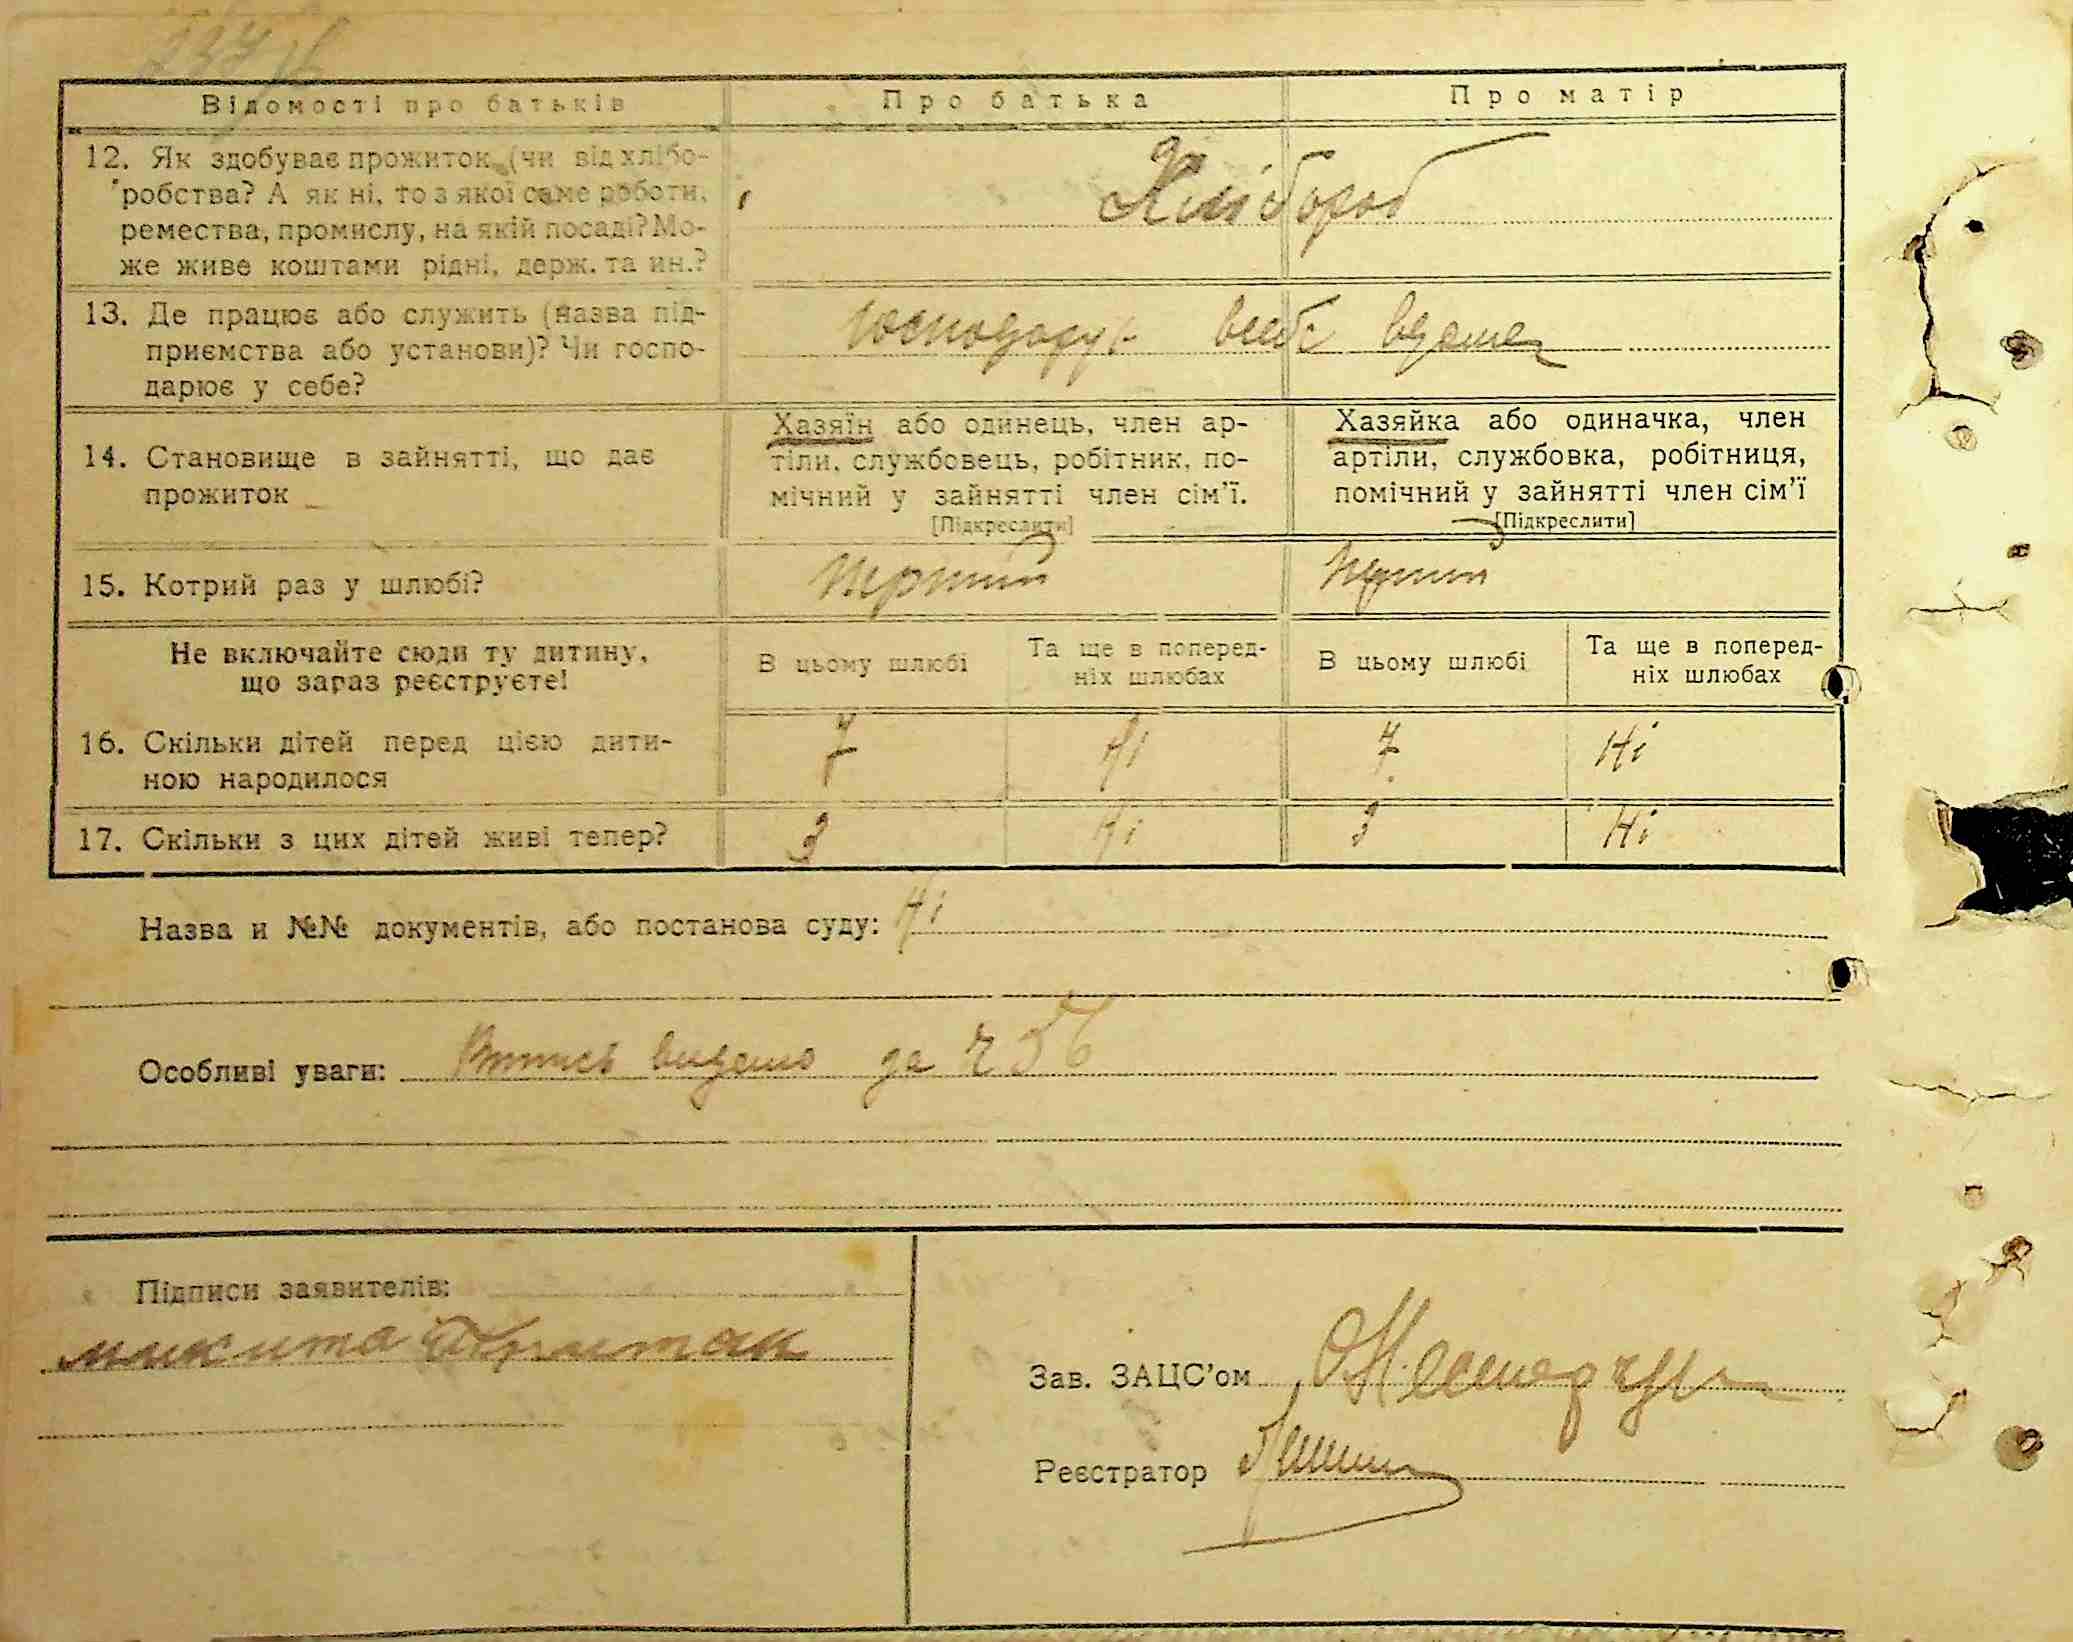 237
Відомості про батьків Про батька Про матір
12. Як здобуває прожиток (чи від хлібо-
робства? А як ні, то з якої саме роботи,
ремества, промислу, на якій посаді? Мо-
же живе коштами рідні, держ. та ин.?
Хлібороб
13. Де працює або служить (назва під-
приємства або установи)? Чи госпо-
дарює у себе?
Господарує в себе вдома
14. Становище в зайнятті, що дає
прожиток
Хазяїн або одинець, член ар-
тіли, службовець, робітник, по-
мічний у зайнятті член сім'ї.
[Підкреслити]
Хазяйка або одиначка, член
артіли, службовка, робітниця,
помічний у зайнятті член сім'ї
[Підкреслити]
15. Котрий раз у шлюбі? Перший Перший
Не включайте сюди ту дитину,
що зараз реєструєте!
В цьому шлюбі
Та ще в поперед-
ніх шлюбах
В цьому шлюбі
Та ще в поперед-
ніх шлюбах
16. Скільки дітей перед цією дити-
ною народилося
7 Ні 7 Ні
17. Скільки з цих дітей живі тепер? 3 Ні 3 Ні
Назва и №№ документів, або постанова суду: Ні
Особливі уваги: Витись видано за ч 56
Підписи заявителів:
микита
Зав. ЗАЦС'ом
Реєстратор